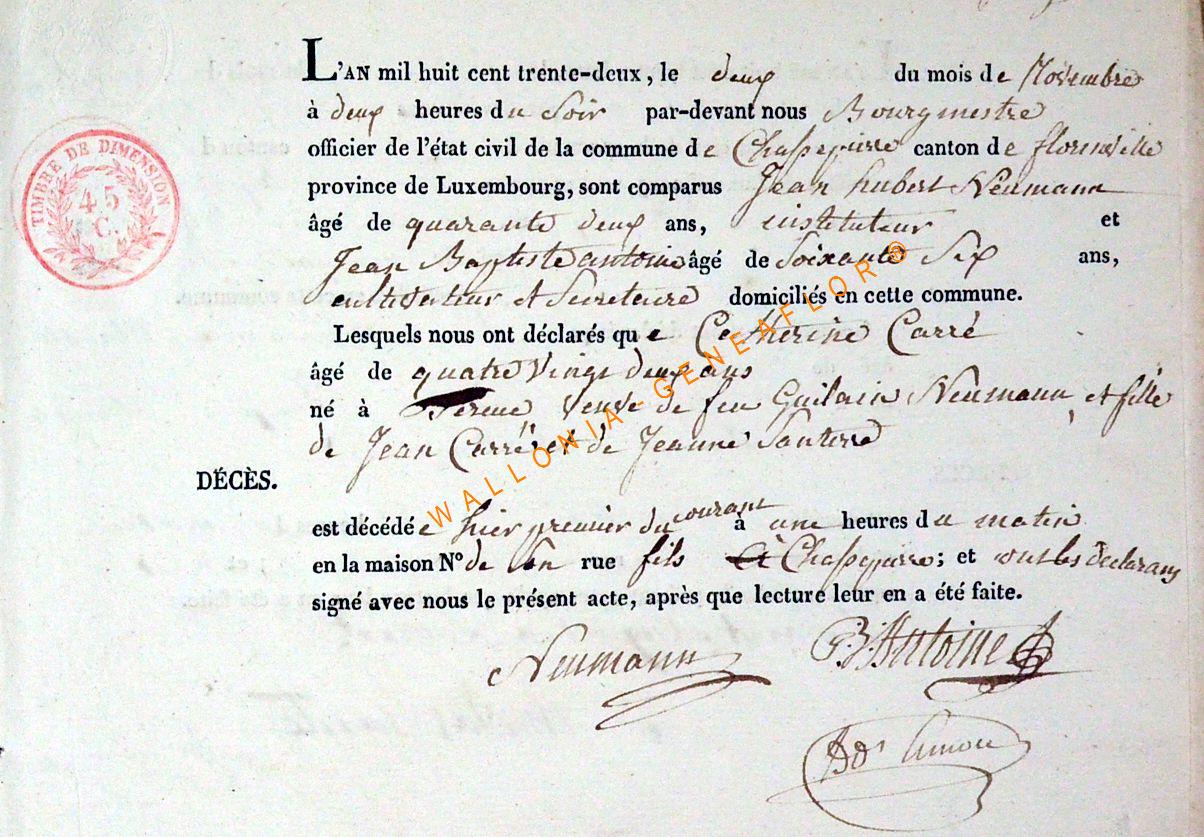 L'AN mil huit cent trente-deux, le deux du mois de Novembre
à deux heures du Soir par-devant nous Bourgmestre
officier de l'état civil de la commune de Chassepierre canton de florenville
province de Luxembourg, sont comparus Jean hubert Neumann
âgé de quarante deux ans, instituteur et
Jean Baptiste antoine âgé de Soixante Six ans,
cultivateur et Secretaire domiciliés en cette commune.
Lesquels nous ont déclarés que Catherine Carré
âgé de quatre Vingt deux ans
né à veuve de feu Guilain Neumann, et fille
de Jean Carré et de Jeanne Santerre
DÉCÈS.
est décédée hier premier du courant à une heures du matin
en la maison N° de son rue fils à Chassepierre; et ont les declarans
signé avec nous le présent acte, après que lecture leur en a été faite.
Neumann J.B. Antoine
TIMBRE DE DIMENSION
45
C.
WALLONIA-GENEAFLOR®